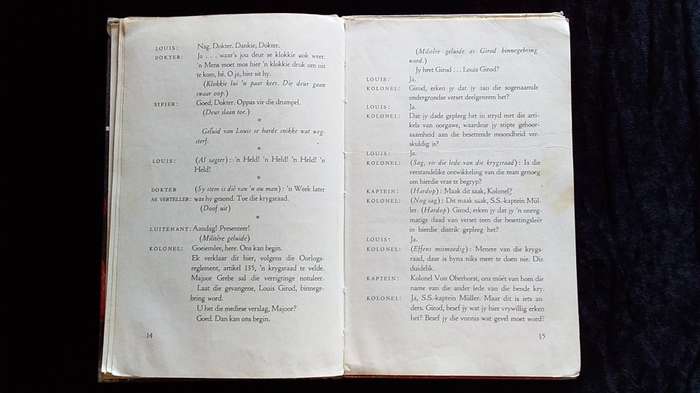 LOUIS: Nag, Dokter. Dankie, Dokter.
DOKTER: Ja . . . waar's jou deur se klokkie ook weer.
'n Mens moet mos hier 'n klokkie druk om uit
te kom, hè. O ja, hier sit hy.
(Klokkie lui 'n paar keer. Die deur gaan
swaar oop.)
SIPIER: Goed, Dokter. Oppas vir die drumpel.
(Deur slaan toe.)
*
Geluid van Louis se harde snikke wat weg-
sterf.
*
LOUIS: (Al sagter): 'n Held! 'n Held! 'n Held! 'n
Held!
*
DOKTER (Sy stem is dié van 'n ou man): 'n Week later
AS VERTELLER: was hy gesond. Toe die krygsraad.
(Doof uit)
*
LUITENANT: Aandag! Presenteer!
(Militêre geluide)
KOLONEL: Goeiemôre, here. Ons kan begin.
Ek verklaar dit hier, volgens die Oorlogs-
reglement, artikel 135, 'n krygsraad te velde.
Majoor Grebe sal die verrigtinge notuleer.
Laat die gevangene, Louis Girod, binnege-
bring word.
U het die mediese verslag, Majoor?
Goed. Dan kan ons begin.
14
(Militêre geluide as Girod binnegebring
word.)
Jy heet Girod . . . Louis Girod?
LOUIS: Ja.
KOLONEL: Girod, erken jy dat jy aan die sogenaamde
ondergrondse verset deelgeneem het?
LOUIS: Ja.
KOLONEL: Dat jy dade gepleeg het in stryd met die arti-
kels van oorgawe, waardeur jy stipte gehoor-
saamheid aan die besettende moondheid ver-
skuldig is?
LOUIS: Ja.
KOLONEL: (Sag, vir die lede van die krygsraad): Is die
verstandelike ontwikkeling van die man genoeg
om hierdie vrae te begryp?
KAPTEIN: (Hardop): Maak dit saak, Kolonel?
KOLONEL: (Nog sag): Dit maak saak, S.S.-kaptein Mül-
ler. (Hardop) Girod, erken jy dat jy 'n oreg-
matige daad van verset teen die besettingsleër
in hierdie distrik gepleeg het?
LOUIS: Ja.
KOLONEL: (Effens mismoedig): Menere van die krygs-
raad, daar is byna niks meer te doen nie. Dit
duidelik.
KAPTEIN: Kolonel Von Oberhorst, ons móet van hom die
name van die ander lede van die bende kry.
KOLONEL: Ja, S.S.-kaptein Müller. Maar dit is iets an-
ders. Girod, besef jy wat jy hier vrywillig erken
het? Besef jy die vonnis wat gevel moet word?
15